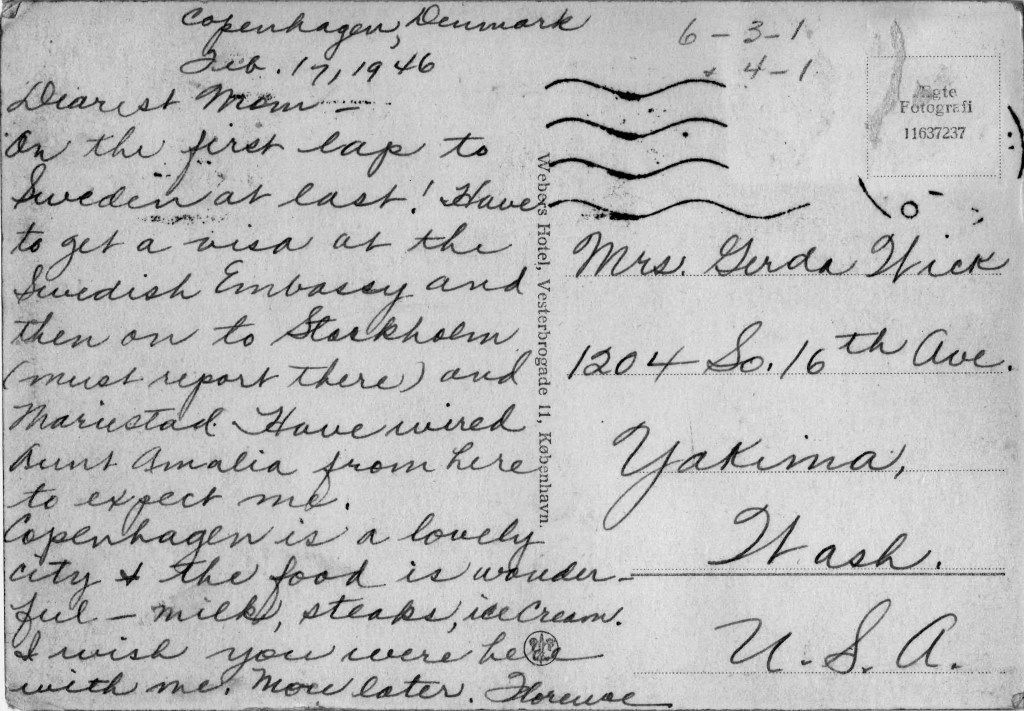 Copenhagen, Denmark
Feb. 17, 1946
Dearest Mom —
On the first lap to
Sweden at last! Have
to get a visa at the
Swedish Embassy and
then on to Stockholm
(must report there) and
Mariestad. Have wired
Aunt Amalia from here
to expect me.
Copenhagen is a lovely
city & the food is wonder-
ful — milk, steaks, ice cream.
I wish you were here
with me. More later. Florence
Webers Hotel, Vesterbrogade 11, København.
6-3-1
4-1
Egte
Fotografi
11637237
Mrs. Gerda Wick
1204 So. 16th Ave.
Yakima,
Wash.
U.S.A.